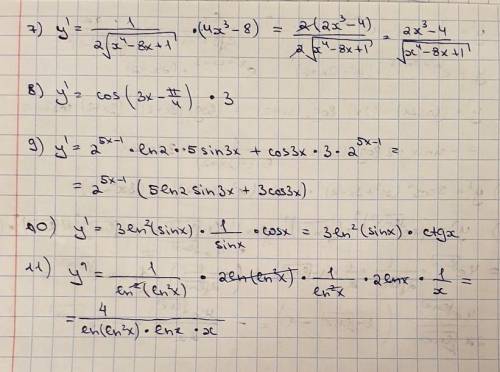 7) y' = 1/(2√(x⁴-8x+1)) · (4x³-8) = 2(2x³-4)/(2√(x⁴-8x+1)) = (2x³-4)/√(x⁴-8x+1)
8) y' = cos(3x - π/4) · 3
9) y' = 2^(5x-1) · ln2 · 5 sin3x + cos3x · 3 · 2^(5x-1) =
= 2^(5x-1) (5ln2 sin3x + 3cos3x)
10) y' = 3ln²(sinx) · 1/sinx · cosx = 3ln²(sinx) · ctgx
11) y' = 1/(ln²(ln²x)) · 2ln(ln²x) · 1/(ln²x) · 2lnx · 1/x =
= 4/(ln(ln²x) · lnx · x)